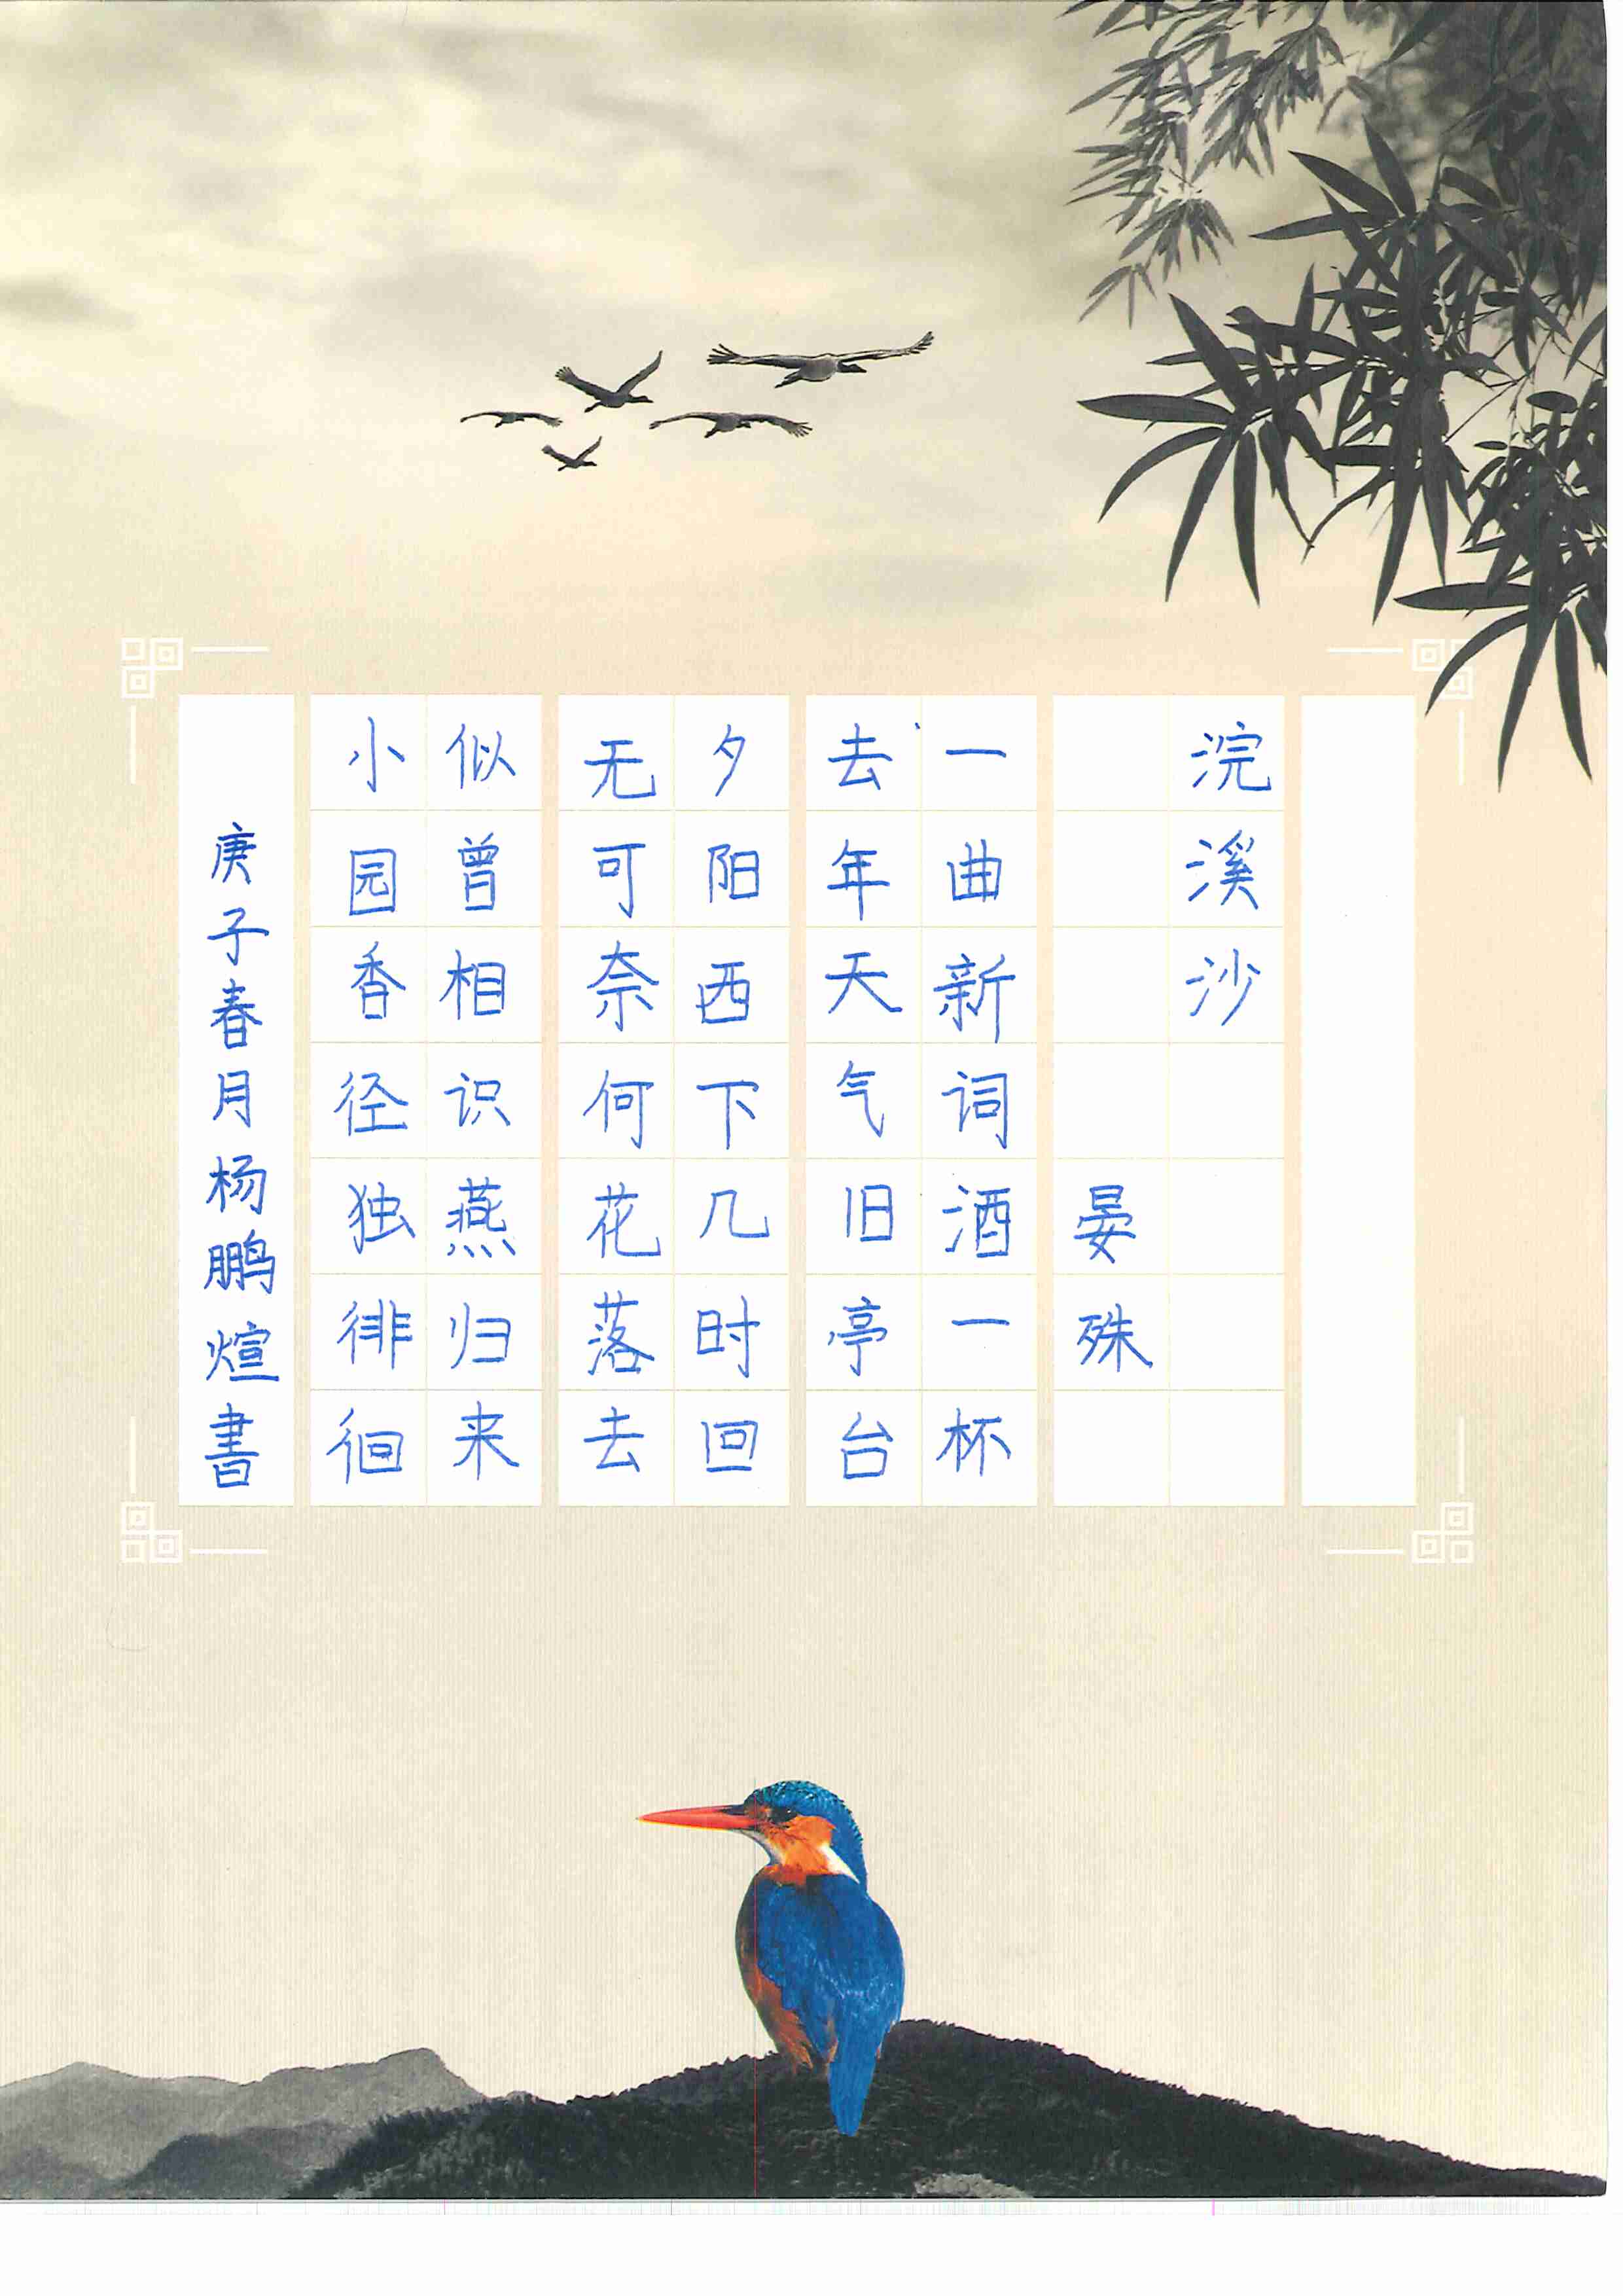 浣溪沙
晏殊
一曲新词酒一杯
去年天气旧亭台
夕阳西下几时回
无可奈何花落去
似曾相识燕归来
小园香径独徘徊
庚子春月杨鹏煊書